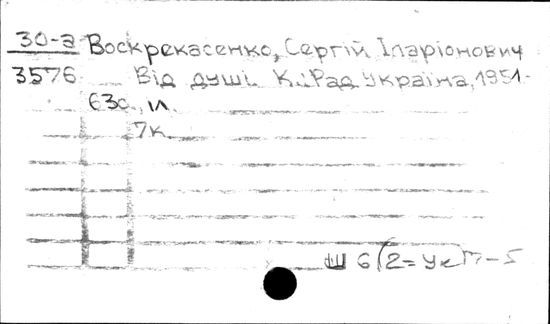 30-а Воскрекасенко, Сергій Іларіонович
3576 Від душі. К.: Рад. Україна, 1951.
63с., ил.
7к.
Ш 6(2=Ук)7-5